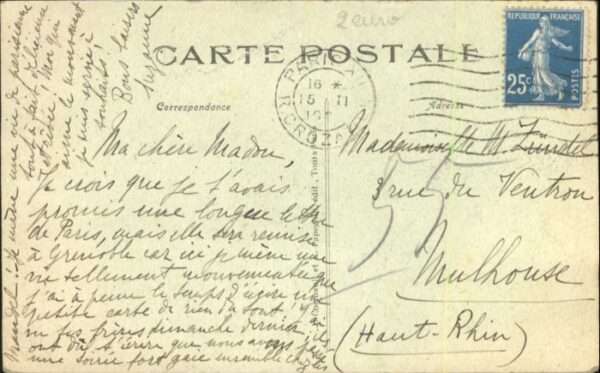 2 euro
CARTE POSTALE
REPUBLIQUE FRANÇAISE
25c
POSTES
PARIS
16
15 II
R. CROZATIER
Correspondance
Adresse
Ma chère Madou,
Je crois que je t'avais
promis une longue lettre
de Paris, mais elle sera remise
à Grenoble car ici je mène une
vie tellement mouvementée que
j'ai à peine le temps d'écrire une
petite carte de rien du tout. J'ai
vu tes frères dimanche dernier, ils
ont dû t'écrire que nous avons passé
une soirée fort gaie ensemble chez les
Mandel. Je mène une vie de parisienne
tout à fait
et
Moi qui
aime le mouvement
je suis servie à
souhaits!
Bons baisers
Suzanne
Mademoiselle M. Zündel
3 rue du Ventron
Mulhouse
(Haut-Rhin)